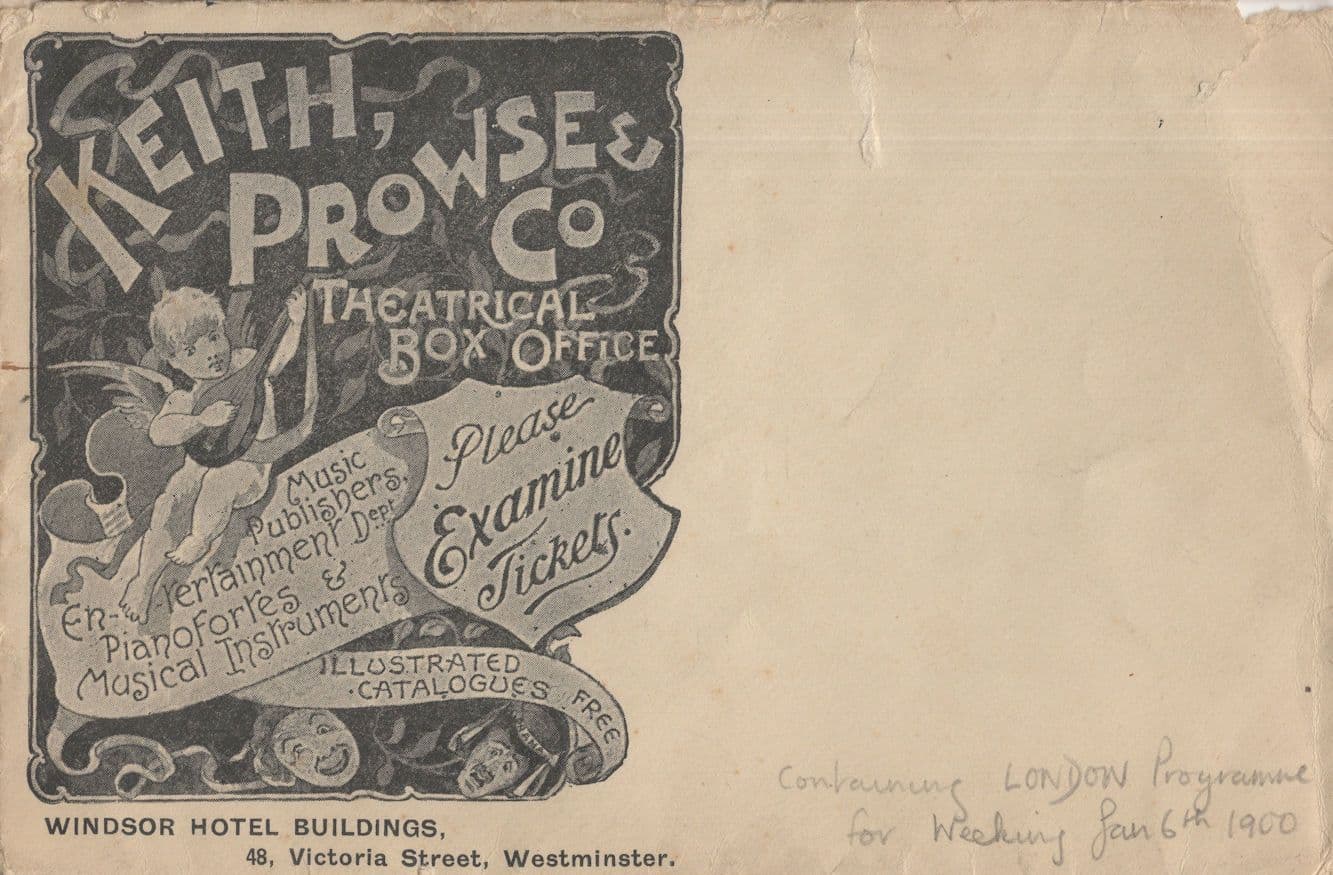 KEITH,
PROWSE &
CO
THEATRICAL
BOX OFFICE
Please
Examine
Tickets.
Music
Publishers,
En-tertainment Dept
Pianofortes &
Musical Instruments
ILLUSTRATED
·CATALOGUES FREE
WINDSOR HOTEL BUILDINGS,
48, Victoria Street, Westminster.
Containing LONDON Programme
for Weeking Jan 6th 1900